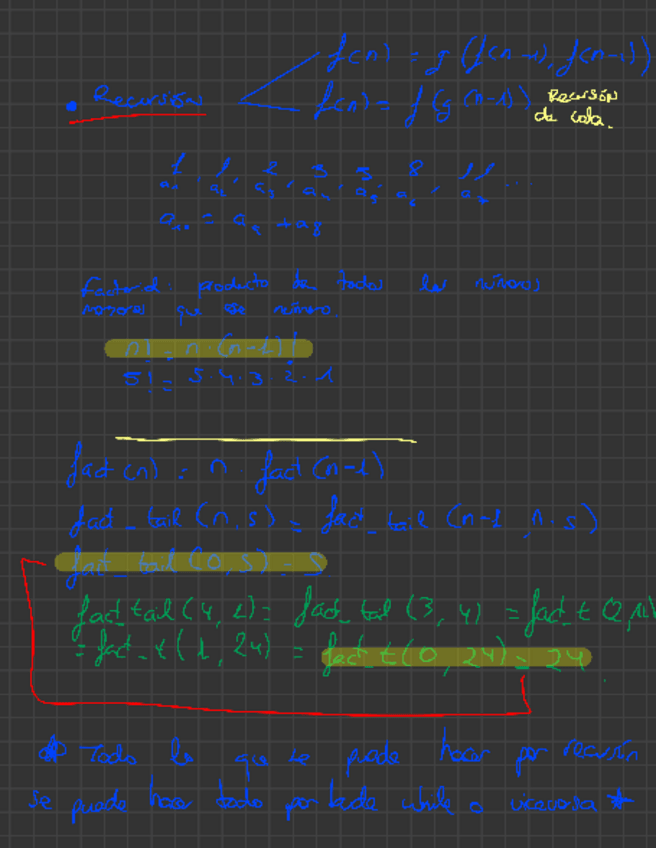 f(n) = g (f(n-1), f(n-1))
• Recursión
f(n) = f (g (n-1))
Recursión
de cola.
1, 1, 2, 3, 5, 8, 11 ...
a₁ a₂ a₃ a₄ a₅ a₆ a₇
a₁₀ = a₉ + a₈
Factorial: producto de todos los números
menores que ese número.
n! = n · (n-1)!
5! = 5·4·3·2·1
fact (n) = n · fact (n-1)
fact_tail (n, s) = fact_tail (n-1, n·s)
fact_tail (0, s) = s
fact_tail (4, 1) = fact_tail (3, 4) = fact_t (2, 12)
= fact_t (1, 24) = fact_t (0, 24) = 24
* Todo lo que se puede hacer por recursión
se puede hacer todo por bucle while o viceversa *